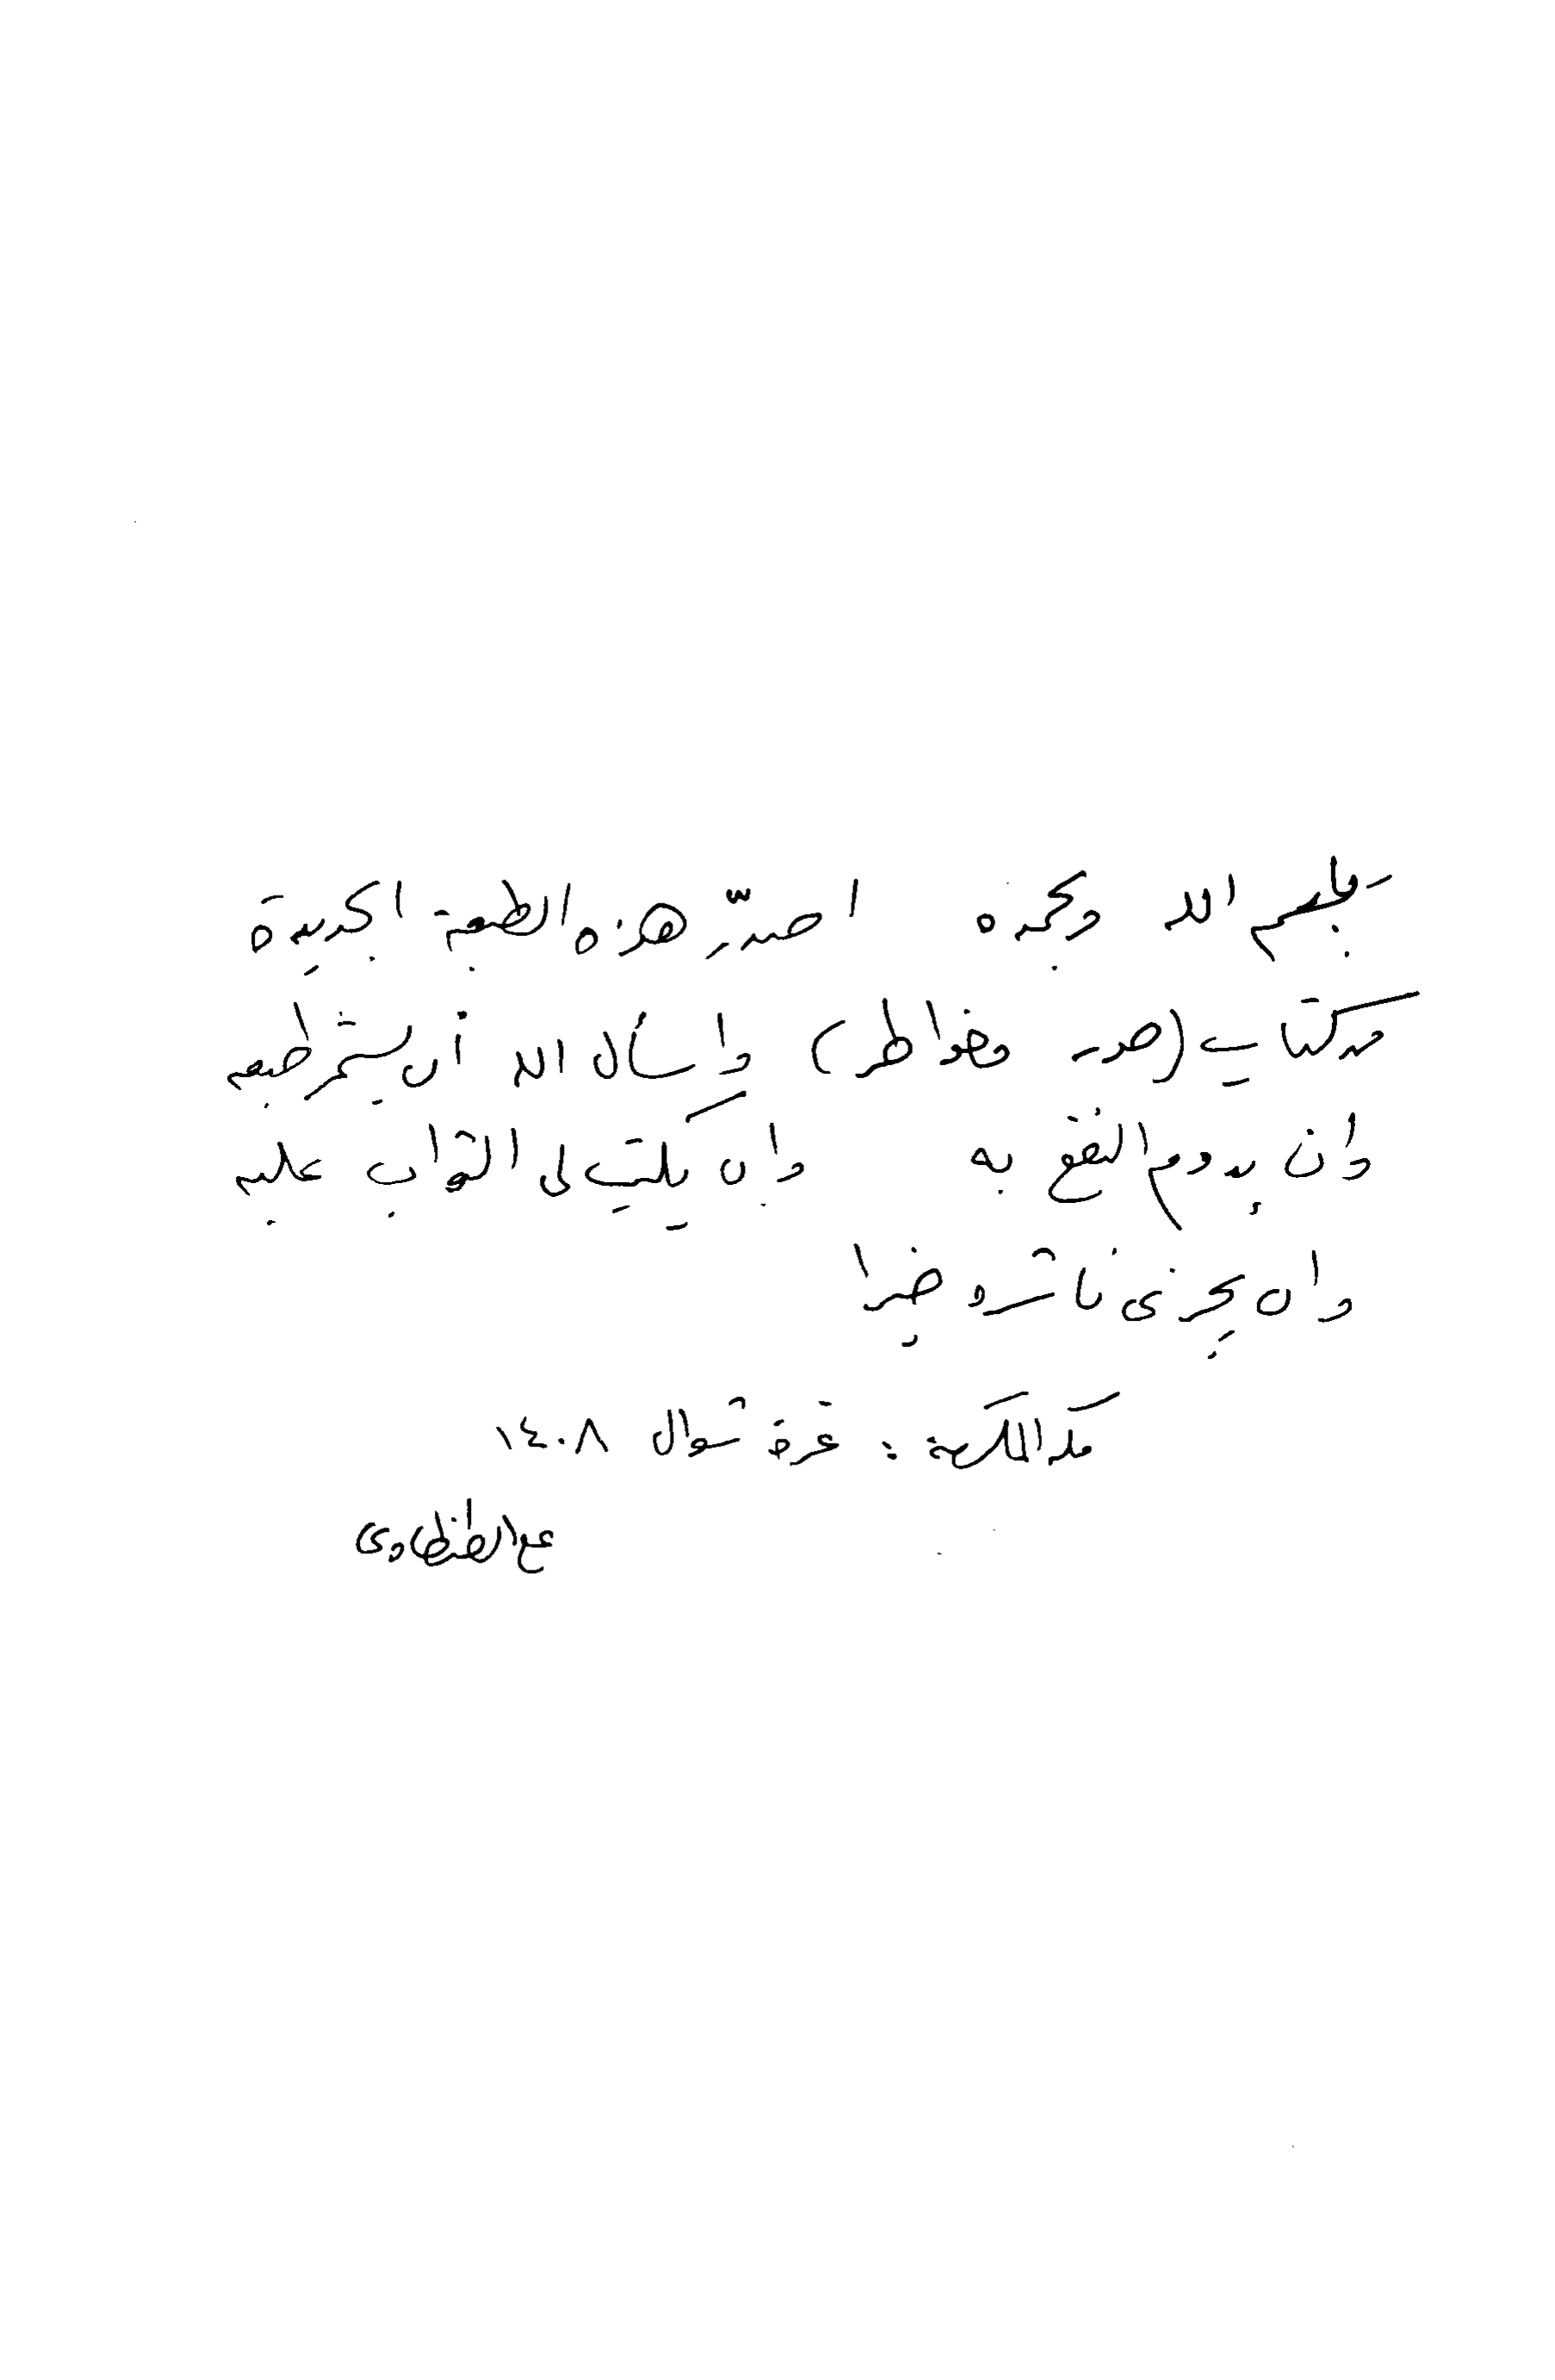 فباسم الله وبحمده اصدّر هذه الطبعة الجديدة
من كتاب (صور وخواطر) واسأل الله أن يستمر طبعه
وان يدوم النفع به وان يكتب لى الثواب عليه
وان يجزى ناشره خيرا
مكة المكرمة : غرة شوال ١٤٠٨
على الطنطاوى